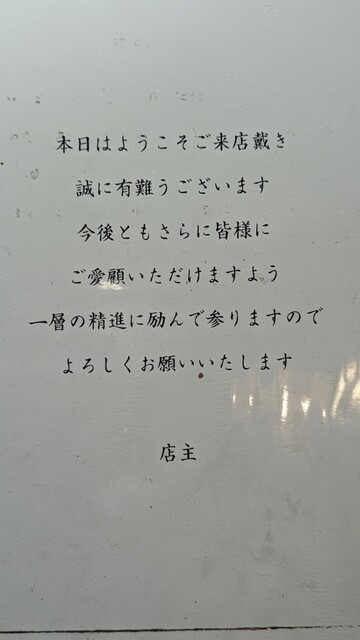 本日はようこそご来店戴き
誠に有難うございます
今後ともさらに皆様に
ご愛願いただけますよう
一層の精進に励んで参りますので
よろしくお願いいたします
店主